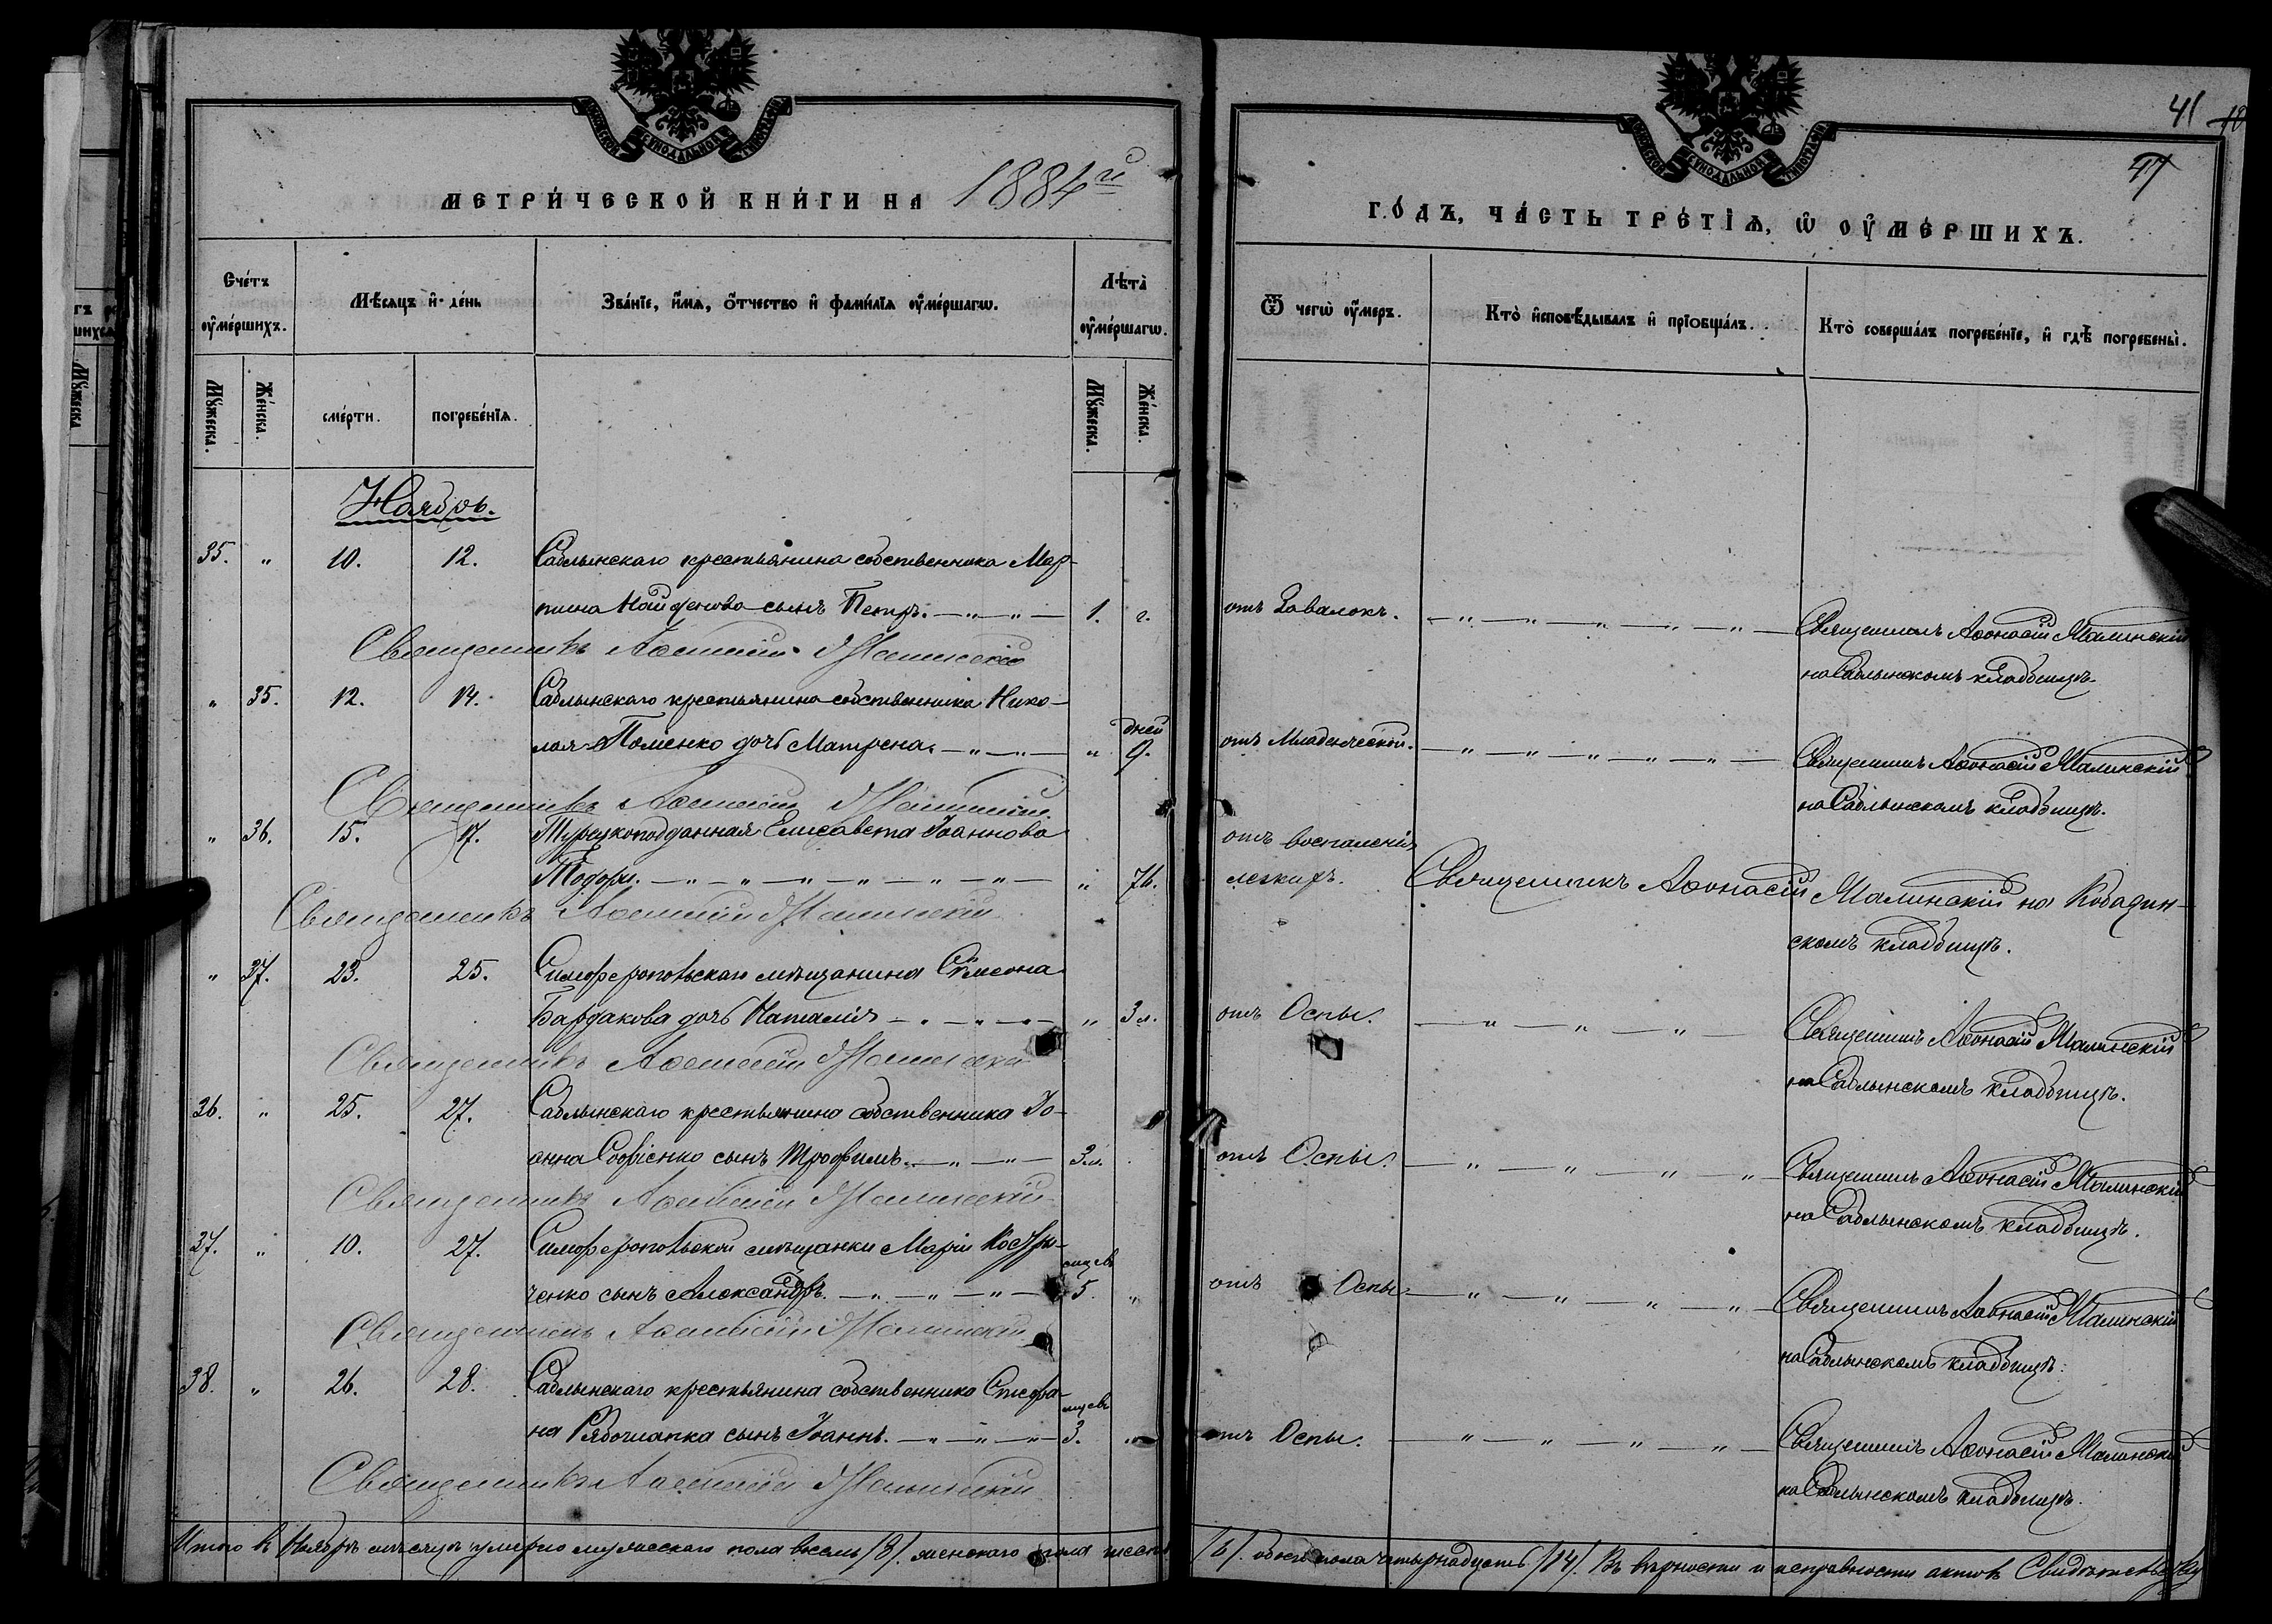 41
47
МОСКОВСКОЙ СѴНОДАЛЬНОЙ ТИПОГРАФІИ
МОСКОВСКОЙ СѴНОДАЛЬНОЙ ТИПОГРАФІИ
МЕТРИ́ЧЕСКОЙ КНИ́ГИ НА 1884й
ГО́ДЪ, ЧА́СТЬ ТРЕ́ТІѦ, Ѡ҆ ОУ҆МЕ́РШИХЪ.
Сче́тъ оу҆ме́ршихъ.
Мѣ́сяцъ и҆ де́нь
Зва́нїе, и҆́мя, ѻ҆́тчество и҆ фами́лїя оу҆ме́ршагѡ.
Лѣта̀ оу҆ме́ршагѡ.
Ѿ чегѡ̀ оу҆́меръ.
Кто̀ и҆сповѣ́дывалъ и҆ прїобща́лъ.
Кто̀ соверша́лъ погребе́нїе, и҆ гдѣ̀ погребены̀.
Мꙋ́жеска. Же́нска. сме́рти. погребе́нїя. Мꙋ́жеска. Же́нска.
Ноябрь.
35. " 10. 12. Саблынскаго крестьянина собственника Мар-
тина Найденова сынъ Петръ. 1. г. отъ Завалокъ. Священникъ Аѳонасій Малинскій
на Саблынскомъ кладбищѣ.
Священникъ Аѳанасій Малинскій
" 35. 12. 14. Саблынскаго крестьянина собственника Нико-
лая Поменко дочь Матрена. " дней 9. отъ Младенческой. Священникъ Аѳонасій Малинскій
на Саблынскомъ кладбищѣ.
Священникъ Аѳанасій Малинскій
" 36. 15. 17. Турецкоподданная Елисавета Іоаннова
Тодоры. " 76. отъ воспаленія легкихъ. Священникъ Аѳонасій Малинскій на Кобазин-
скомъ кладбищѣ.
Священникъ Аѳанасій Малинскій
" 37. 23. 25. Симферопольскаго мѣщанина Сѵмеона
Бардакова дочь Наталія " 3 л. отъ Оспы. Священникъ Аѳонасій Малинскій
на Саблынскомъ кладбищѣ.
Священникъ Аѳанасій Малинскій
36. " 25. 27. Саблынскаго крестьянина собственника Іо-
анна Софіенко сынъ Трофимъ. 3 л. отъ Оспы. Священникъ Аѳонасій Малинскій
на Саблынскомъ кладбищѣ.
Священникъ Аѳанасій Малинскій
37. " 10. 27. Симферопольской мѣщанки Маріи
ченко сынъ Александръ. мѣсяц. 5. " отъ Оспы. Священникъ Аѳонасій Малинскій
на Саблынскомъ кладбищѣ.
Священникъ Аѳанасій Малинскій
38. " 26. 28. Саблынскаго крестьянина собственника Стефа-
на Рябошапка сынъ Іоаннъ. мѣсяц. 3. " отъ Оспы. Священникъ Аѳонасій Малинскій
на Саблынскомъ кладбищѣ.
Священникъ Аѳанасій Малинскій
Итого въ Ноябрѣ мѣсяцѣ умерло мужескаго пола восемь /8/. женскаго пола шесть /6/. обоего пола четырнадцать /14/. Въ вѣрности и исправности актовъ